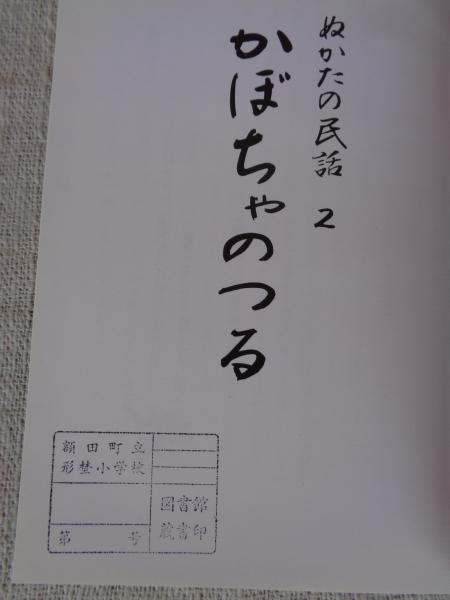 ぬかたの民話 2
かぼちゃのつる
額田町立
形埜小学校
図書館
蔵書印
第 号